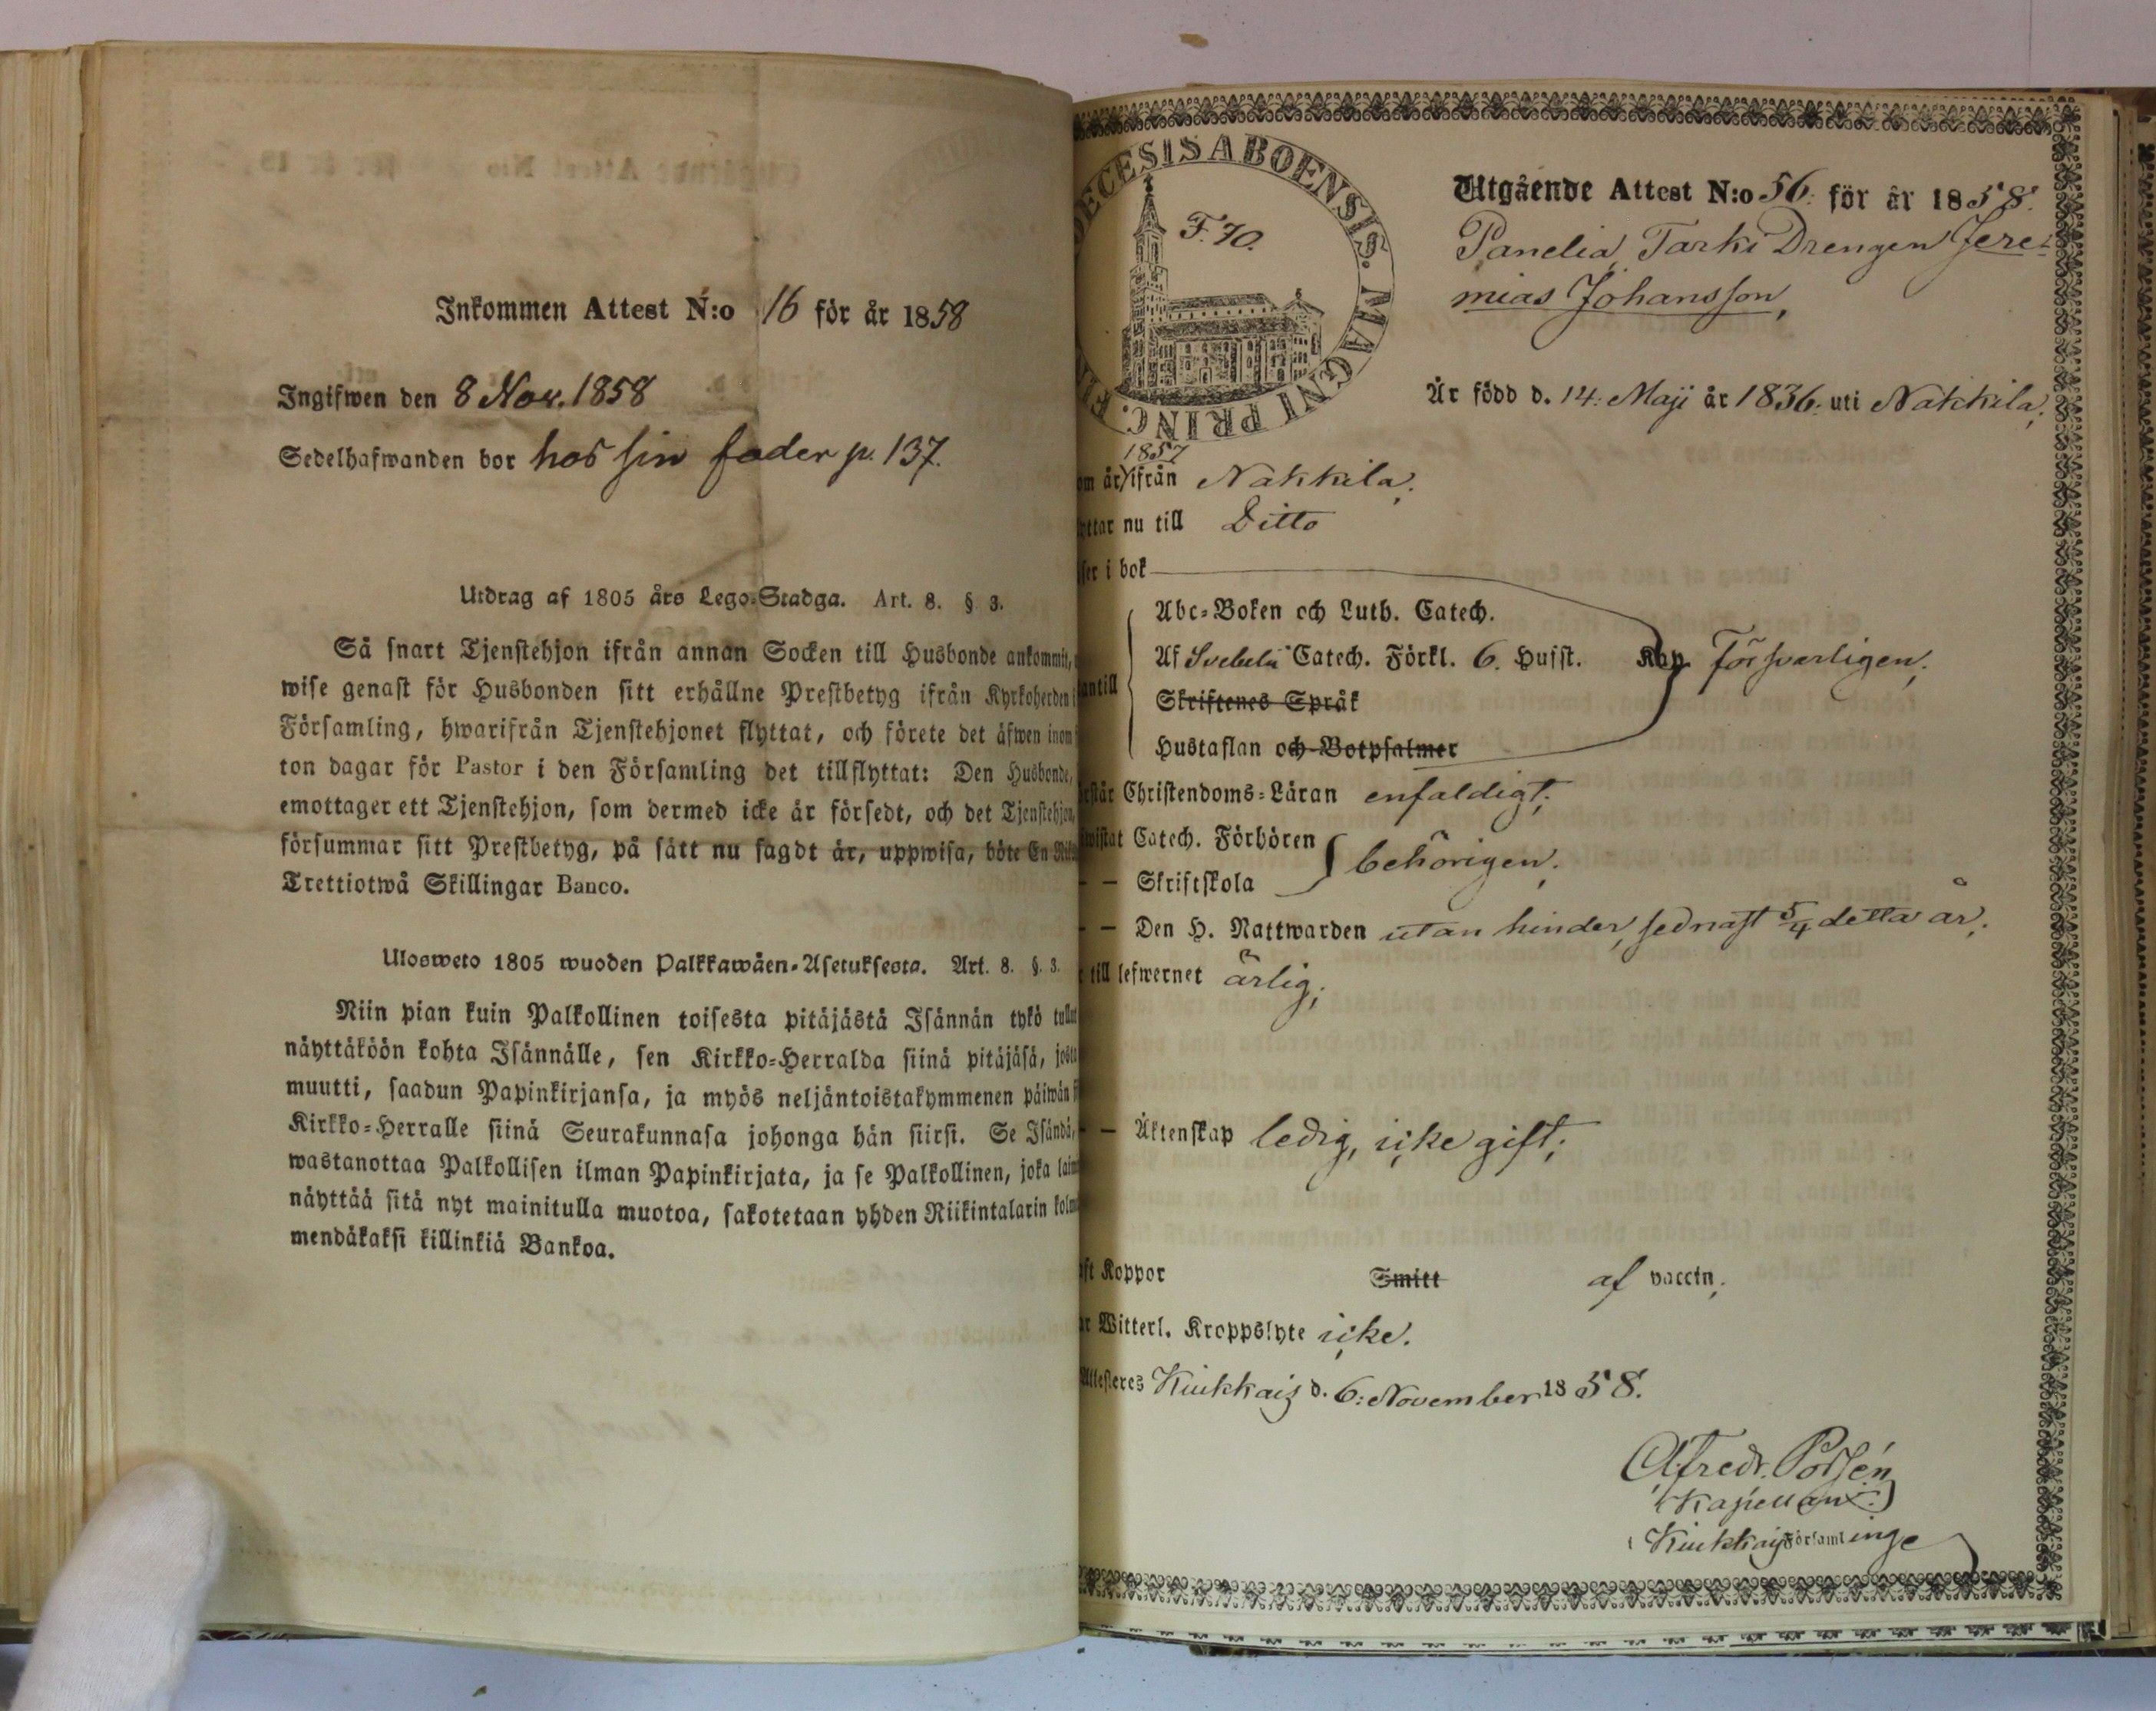 Inkommen Attest N:o 16 för år 1858
Ingifwen den 8 Nov. 1858
Sedelhafwanden bor hos sin fader p. 137.
Utdrag af 1805 års Lego-Stadga. Art. 8. § 3.
Så snart Tjenstehjon ifrån annan Socken till Husbonde ankommit,
wise genast för Husbonden sitt erhållne Prestbetyg ifrån Kyrkoherden i
Församling, hwarifrån Tjenstehjonet flyttat, och förete det äfwen inom
ton dagar för Pastor i den Församling det tillflyttat: Den Husbonde,
emottager ett Tjenstehjon, som dermed icke är försedt, och det Tjenstehjon,
försummar sitt Prestbetyg, på sätt nu sagdt är, uppwisa, böte En
Trettiotwå Skillingar Banco.
Ulosweto 1805 wuoden Palkkawäen-Asetuksesta. Art. 8. §. 3.
Niin pian kuin Palkollinen toisesta pitäjästä Isännän tykö
näyttäköön kohta Isännälle, sen Kirkko-Herralda siinä pitäjäsä,
muutti, saadun Papinkirjansa, ja myös neljäntoistakymmenen päiwän
Kirkko-Herralle siinä Seurakunnasa johonga hän siirsi. Se Isändä,
wastanottaa Palkollisen ilman Papinkirjata, ja se Palkollinen, joka
näyttää sitä nyt mainitulla muotoa, sakotetaan yhden Riikintalarin
mendäkaksi killinkiä Bankoa.
ECESIS ABOENSIS. MAGNI PRINC.
F. 70.
Utgående Attest N:o 56. för år 1858.
Panelia, Tarki Drengen Jere-
mias Johansson,
Är född d. 14. Maji år 1836. uti Nakkila;
1857
om är ifrån Nakkila;
yttar nu till Ditto
ser i bok
Abc-Boken och Luth. Catech.
Af Svebelii Catech. Förkl. 6. Husst. Kap. försvarligen;
antill
Skriftenes Språk
Hustaflan och Botpsalmer
rstår Christendoms-Läran enfaldigt;
wistat Catech. Förhören
behörigen;
— — Skriftskola
— — Den H. Nattwarden utan hinder, sednast 5/4 detta år;
till lefwernet ärlig;
— — Äktenskap ledig, icke gift;
ft Koppor Smitt af vaccin;
r Witterl. Kroppslyte icke.
Attesteres Kiukkais d. 6. November 1858.
Alfredr. Porsén
(Kapellan.)
i Kiukkais Församlinge